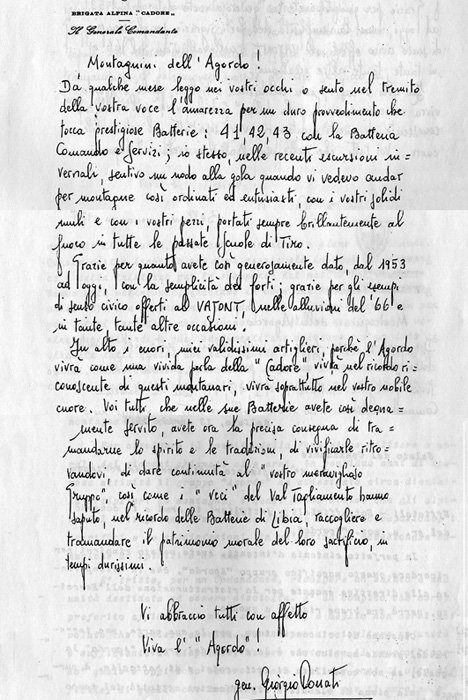 BRIGATA ALPINA "CADORE"
Il Generale Comandante
Montagnini dell'Agordo!
Da qualche mese leggo nei vostri occhi o sento nel tremito
della vostra voce l'amarezza per un duro provvedimento che
tocca prestigiose Batterie: 41, 42, 43 con la Batteria
Comando e Servizi; io stesso, nelle recenti escursioni in=
vernali, sentivo un nodo alla gola quando vi vedevo andar
per montagne così ordinati ed entusiasti, con i vostri solidi
muli e con i vostri pezzi, portati sempre brillantemente al
fuoco in tutte le passate Scuole di Tiro.
Grazie per quanto avete così generosamente dato, dal 1953
ad oggi, con la semplicità dei forti; grazie per gli esempi
di senso civico offerti al VAJONT, nelle alluvioni del '66 e
in tante, tante altre occasioni.
In alto i cuori, miei validissimi artiglieri, perchè l'Agordo
vivrà come una vivida perla della "Cadore" vivrà nel ricordo ri=
conoscente di questi montanari, vivrà soprattutto nel vostro nobile
cuore. Voi tutti, che nelle sue Batterie avete così degna=
mente servito, avete ora la precisa consegna di tra=
mandarne lo spirito e le tradizioni, di vivificarle ritro=
vandovi, di dare continuità al "vostro meraviglioso
Gruppo", così come i "veci" del Val Tagliamento hanno
saputo, nel ricordo delle Batterie di Libia, raccogliere e
tramandare il patrimonio morale del loro sacrificio, in
tempi durissimi.
Vi abbraccio tutti con affetto
Viva l'"Agordo"!
gen. Giorgio Donati